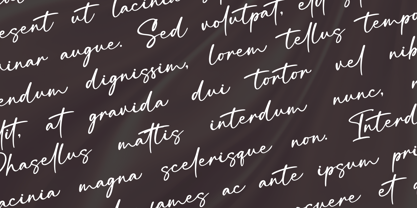 esent ut lacinia
inar augue. Sed volutpat, elit
endum dignissim, lorem tellus temp
lit, at gravida dui tortor vel nib
Phasellus mattis interdum nunc,
acinia magna scelerisque non. Interd
fames ac ante ipsum pri
et